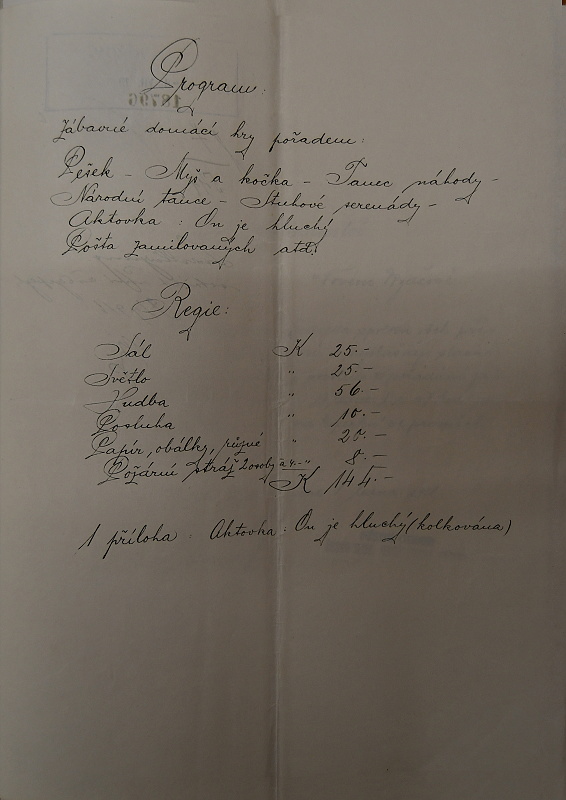 Program:
Zábavné domácí hry pořadem:
Pešek – Myš a kočka – Tanec náhody –
Národní tance – Stuhové serenády –
Aktovka: On je hluchý
Pošta zamilovaných atd.
Regie:
Sál K 25.–
Světlo " 25.–
Hudba " 56.–
Posluha " 10.–
Papír, obálky, různé " 20.–
Požární stráž 2 osoby à 4.– " 8.–
K 144.–
1 příloha: Aktovka: On je hluchý (kolkována)